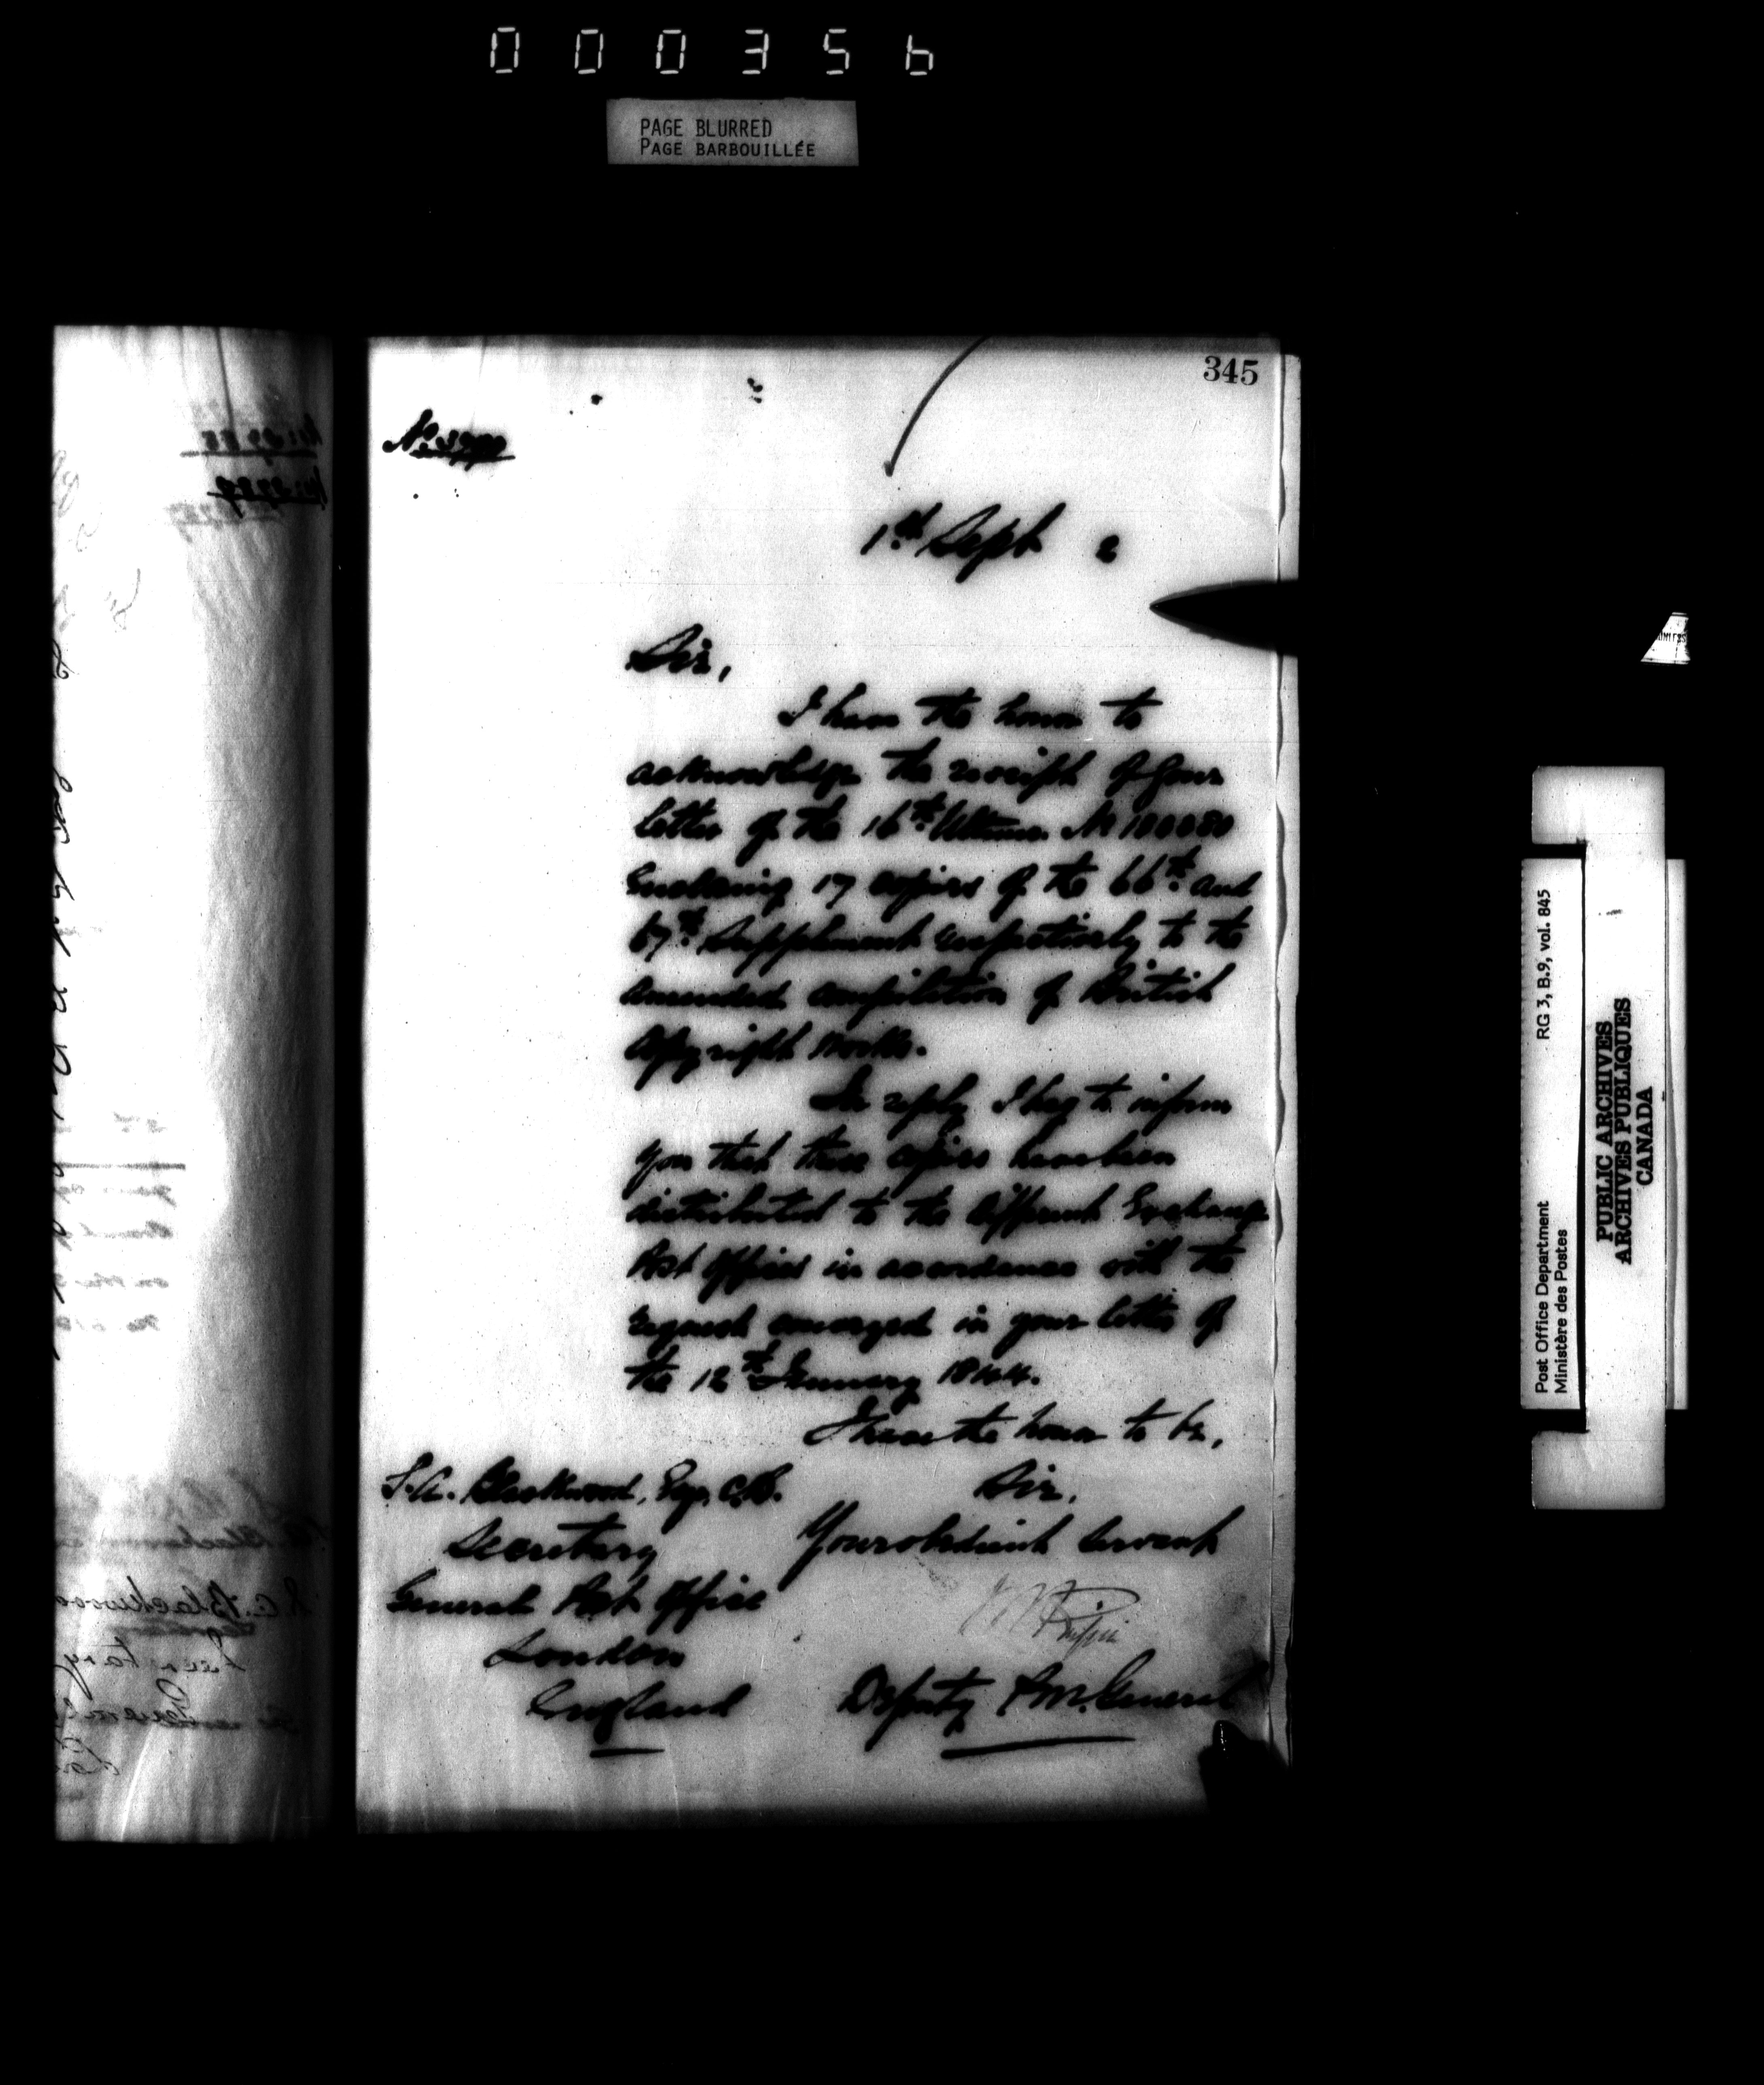 000356
PAGE BLURRED
PAGE BARBOUILLÉE
345
No.
1st Sept 2
Sir,
I have the honor to
acknowledge the receipt of your
letter of the 16th Ultimo. No 180080
Enclosing 17 copies of the 66th and
67th Supplement respectively to the
amended compilation of British
Copyright Works.
In reply I beg to inform
you that these copies have been
distributed to the different Exchange
Post Offices in accordance with the
request conveyed in your letter of
the 12th January 1844.
I have the honor to be,
Sir,
Your obedient Servant
S.A. Blackwood, Esq. C.B.
Secretary
General Post Office
London
England
Deputy P.M. General
Post Office Department RG 3, B.9, vol. 845
Ministère des Postes
PUBLIC ARCHIVES
ARCHIVES PUBLIQUES
CANADA